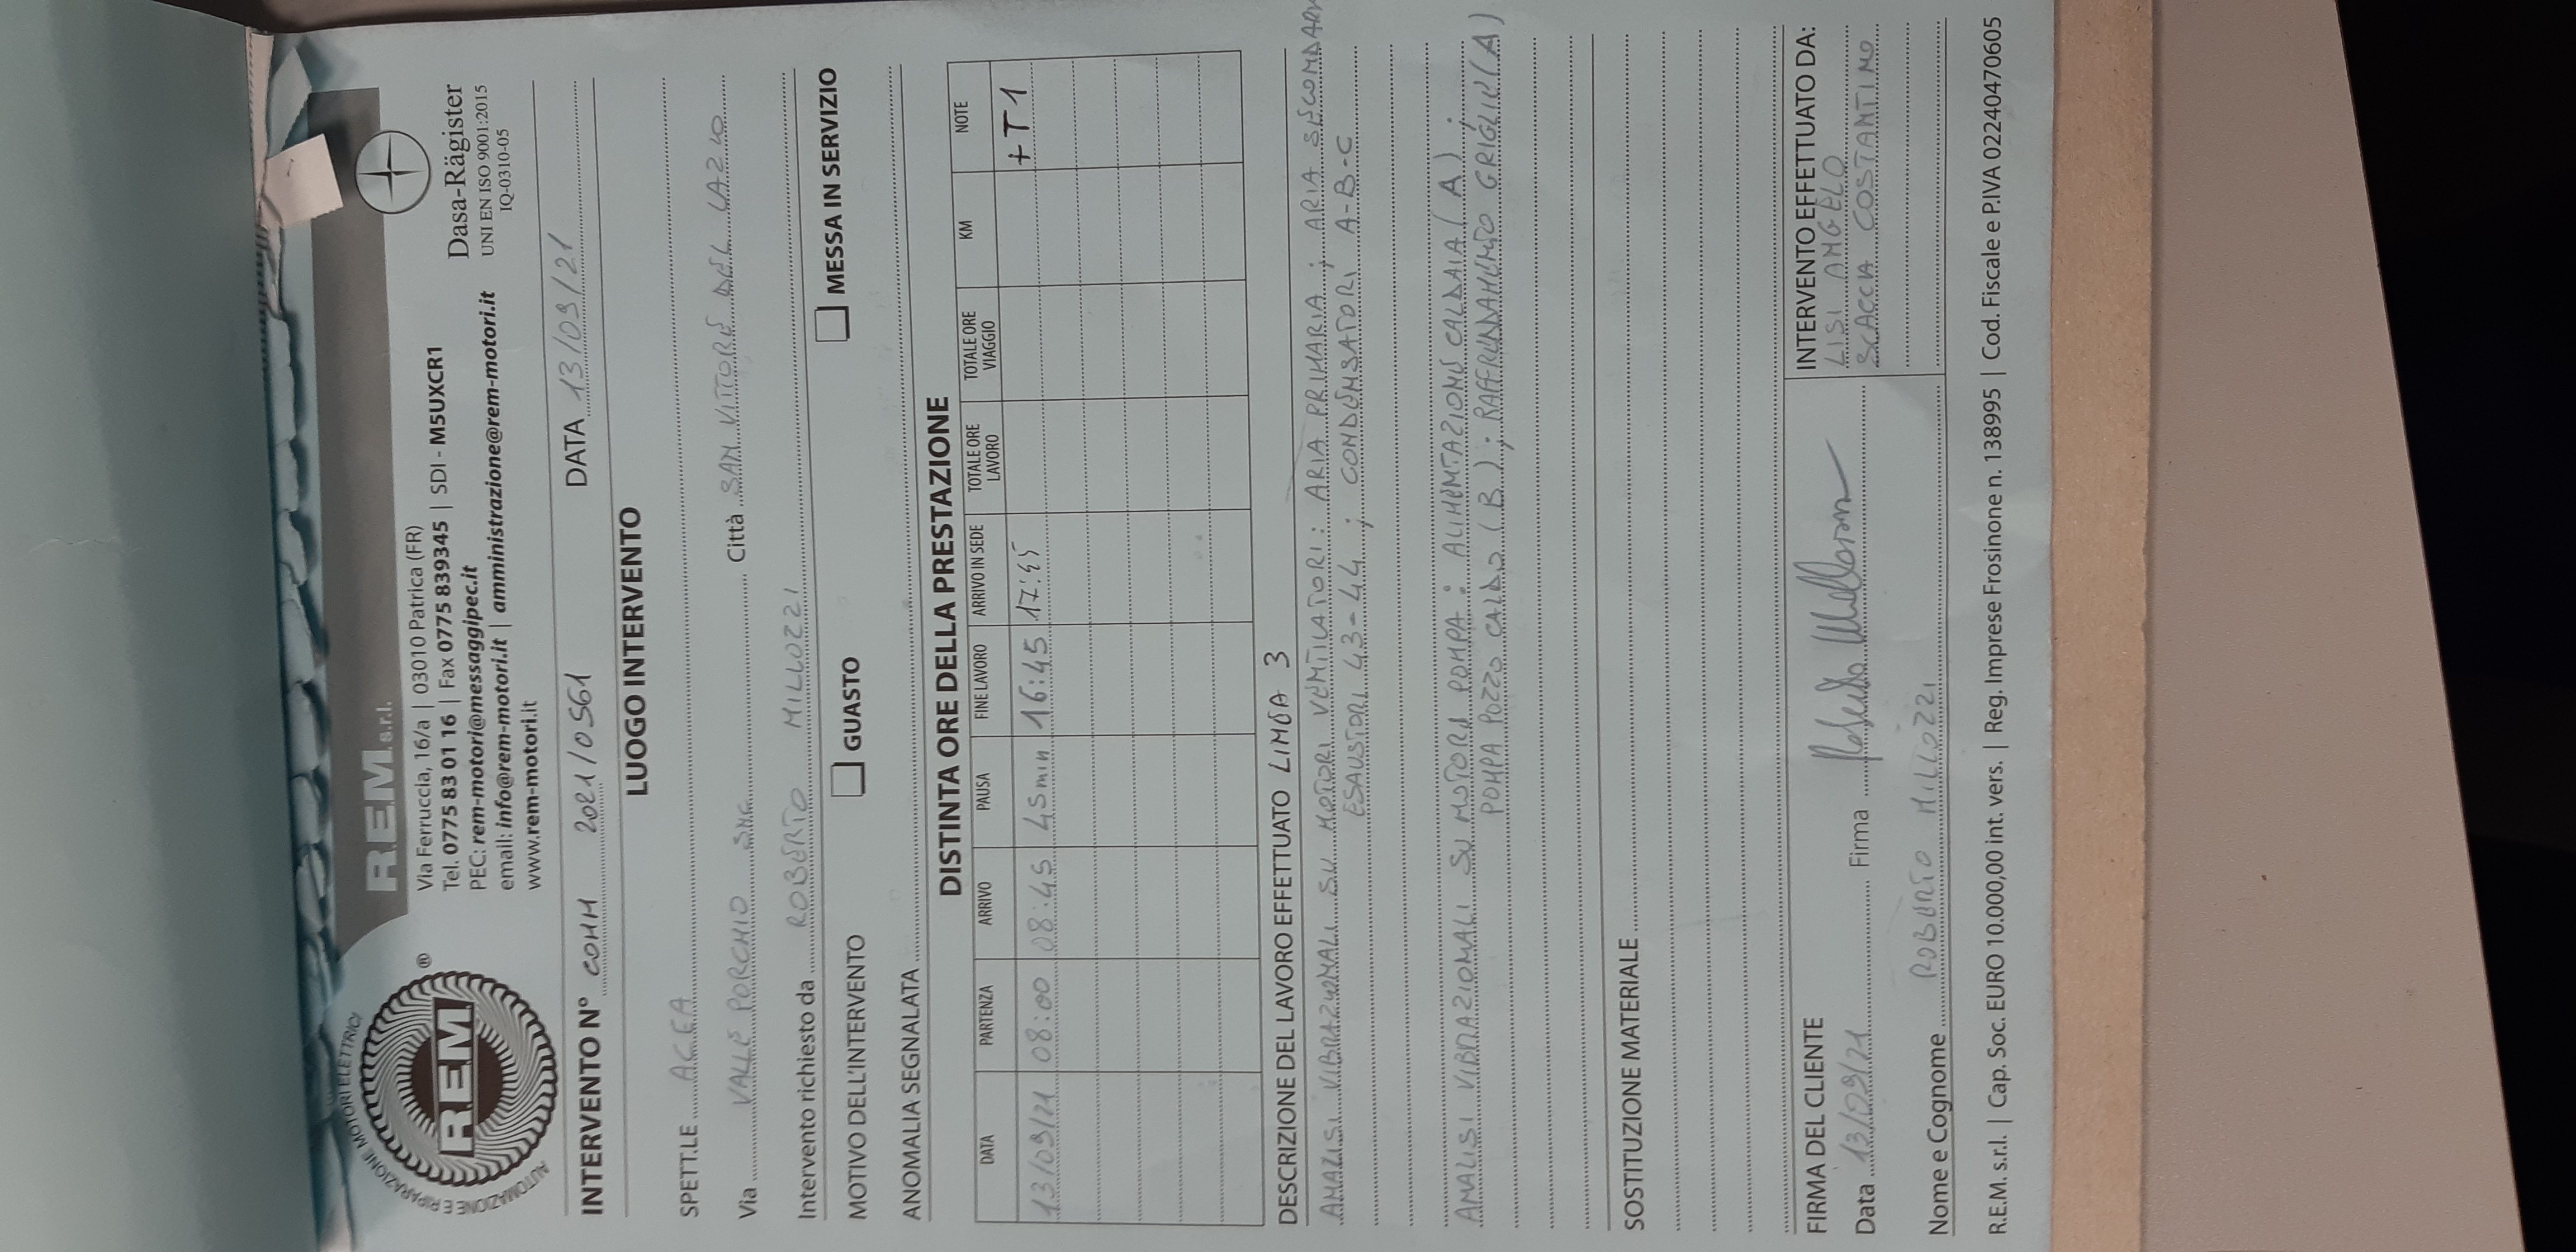 AUTOMAZIONE E RIPARAZIONE MOTORI ELETTRICI
REM ®
R.E.M. s.r.l.
Via Ferruccia, 16/a | 03010 Patrica (FR)
Tel. 0775 83 01 16 | Fax 0775 839345 | SDI - M5UXCR1
PEC: rem-motori@messaggipec.it
email: info@rem-motori.it | amministrazione@rem-motori.it
www.rem-motori.it
Dasa-Rägister
UNI EN ISO 9001:2015
IQ-0310-05
INTERVENTO N° COMM 2021/0561 DATA 13/09/21
LUOGO INTERVENTO
SPETT.LE ACEA
Via VALLE PORCHIO SNC Città SAN VITTORE DEL LAZIO
Intervento richiesto da ROBERTO MILLOZZI
MOTIVO DELL'INTERVENTO GUASTO MESSA IN SERVIZIO
ANOMALIA SEGNALATA
DISTINTA ORE DELLA PRESTAZIONE
DATA PARTENZA ARRIVO PAUSA FINE LAVORO ARRIVO IN SEDE TOTALE ORE LAVORO TOTALE ORE VIAGGIO KM NOTE
13/09/21 08:00 08:45 45min 16:45 17:45 +T1
DESCRIZIONE DEL LAVORO EFFETTUATO LINEA 3
ANALISI VIBRAZIONALI SU MOTORI VENTILATORI: ARIA PRIMARIA ; ARIA
ESAUSTORI 43-44 ; CONDENSATORI A-B-C
ANALISI VIBRAZIONALI SU MOTORI POMPA : ALIMENTAZIONE CALDAIA (A) ;
POMPA POZZO CALDO (B) ; RAFFREDDAMENTO GRIGLIE (A)
SOSTITUZIONE MATERIALE
FIRMA DEL CLIENTE
Data 13/09/21 Firma
Nome e Cognome ROBERTO MILLOZZI
INTERVENTO EFFETTUATO DA:
LISI ANGELO
SCACCIA COSTANTINO
R.E.M. s.r.l. | Cap. Soc. EURO 10.000,00 int. vers. | Reg. Imprese Frosinone n. 138995 | Cod. Fiscale e P.IVA 02240470605